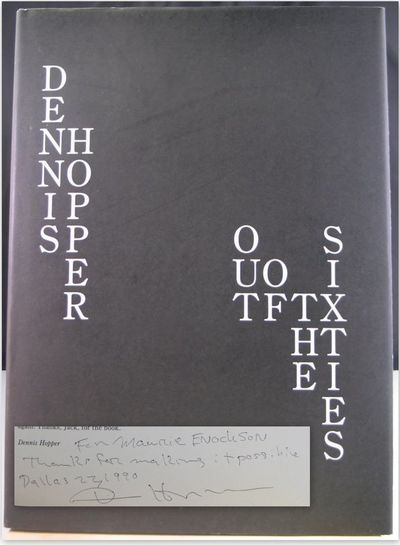 DENNIS
HOPPER
OUT
OF
THE
SIXTIES
again. Thanks, Jack, for the book.
Dennis Hopper
For Maurie Enockson
Thanks for making it possible
Dallas 22, 1990